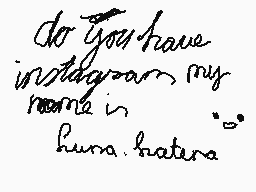 do you have
instagram my
name is
huna.hatena